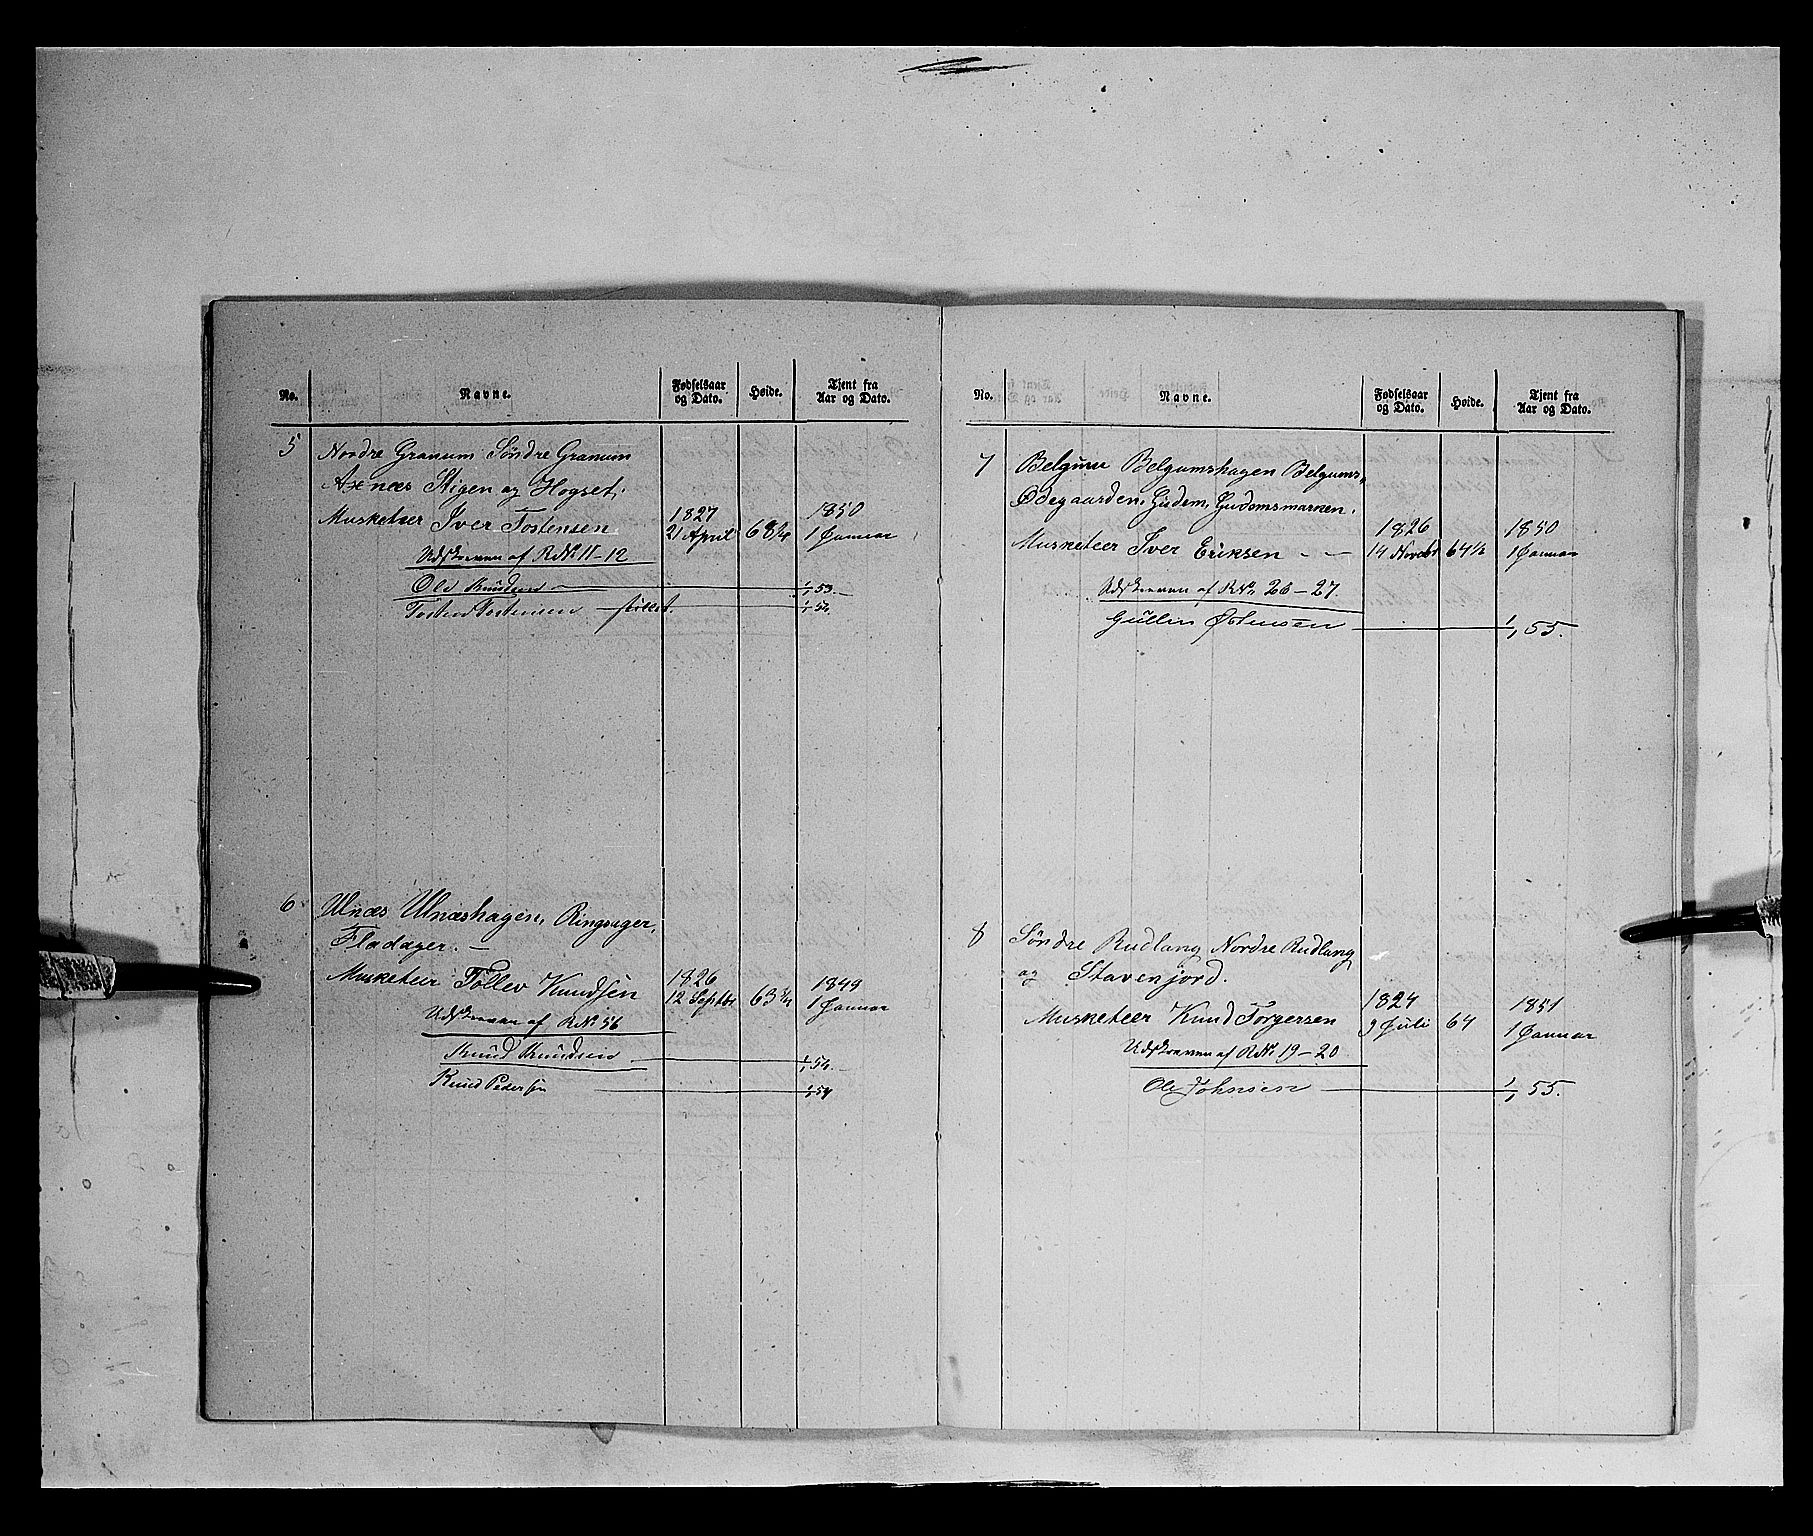 No. Navne. Fødselsaar og Dato. Høide. Tjent fra Aar og Dato.
5 Nordre Granum Søndre Granum
Axnæs Stigen og Hogset.
Musketeer Iver Tostensen 1827 21 April 68 1/4 1850 1 Januar
Udskreven af RNo. 11-12
Ole Knudsen 1/1 53.
Tosten Tostensen stillet. 1/1 54.
6 Ulnæs Ulnæshagen, Ringsager,
Fladager. —
Musketeer Tollev Knudsen 1826 12 Septbr 63 3/4 1849 1 Januar
Udskreven af RNo. 56
Knud Knudsen 1/1 54.
Knud Pedersen 1/1 59
No. Navne. Fødselsaar og Dato. Høide. Tjent fra Aar og Dato.
7 Belgum Belgumshagen Belgums-
Ødegaarden, Gudem, Gudemsmarken.
Musketeer Iver Eriksen - - 1826 14 Novebr 64 1/2 1850 1 Januar
Udskreven af RNo. 26-27
Gullin Østensen 1/1 55.
8 Søndre Rudlang Nordre Rudlang
og Stavenjord.
Musketeer Knud Torgersen 1824 9 Juli 64 1851 1 Januar
Udskreven af RNo. 19-20
Ole Johnsen 1/1 55.